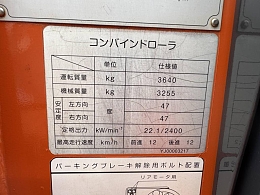 コンバインドローラ
単位 仕様値
運転質量 kg 3640
機械質量 kg 3255
安定度 左方向 度 47
右方向 度 47
定格出力 kW/min⁻¹ 22.1/2400
最高走行速度 km/h 前進 12 後進 12
YJ00003217
パーキングブレーキ解除用ボルト配置
リアモータ用